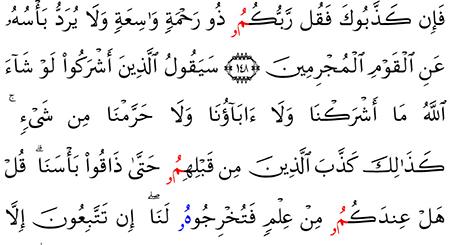 فَإِن كَذَّبُوكَ فَقُل رَّبُّكُمُۥ ذُو رَحْمَةٖ وَٰسِعَةٖ وَلَا يُرَدُّ بَأْسُهُۥ
عَنِ ٱلْقَوْمِ ٱلْمُجْرِمِينَ ١٤٨ سَيَقُولُ ٱلَّذِينَ أَشْرَكُوا۟ لَوْ شَآءَ
ٱللَّهُ مَا أَشْرَكْنَا وَلَا ءَابَآؤُنَا وَلَا حَرَّمْنَا مِن شَىْءٖ ۚ
كَذَٰلِكَ كَذَّبَ ٱلَّذِينَ مِن قَبْلِهِمُۥ حَتَّىٰ ذَاقُوا۟ بَأْسَنَا ۗ قُلْ
هَلْ عِندَكُمُۥ مِنْ عِلْمٖ فَتُخْرِجُوهُۥ لَنَا ۖ إِن تَتَّبِعُونَ إِلَّا